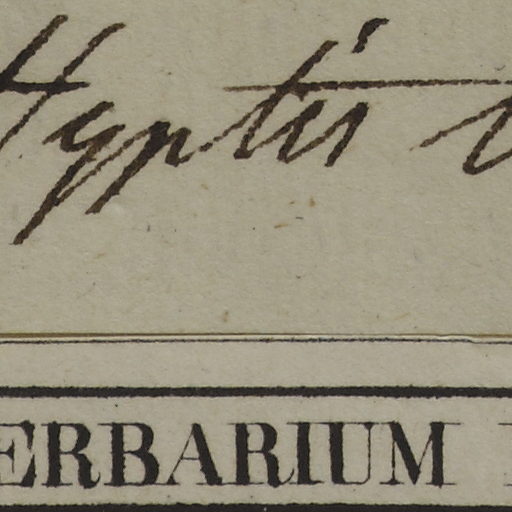 Hyptis
ERBARIUM